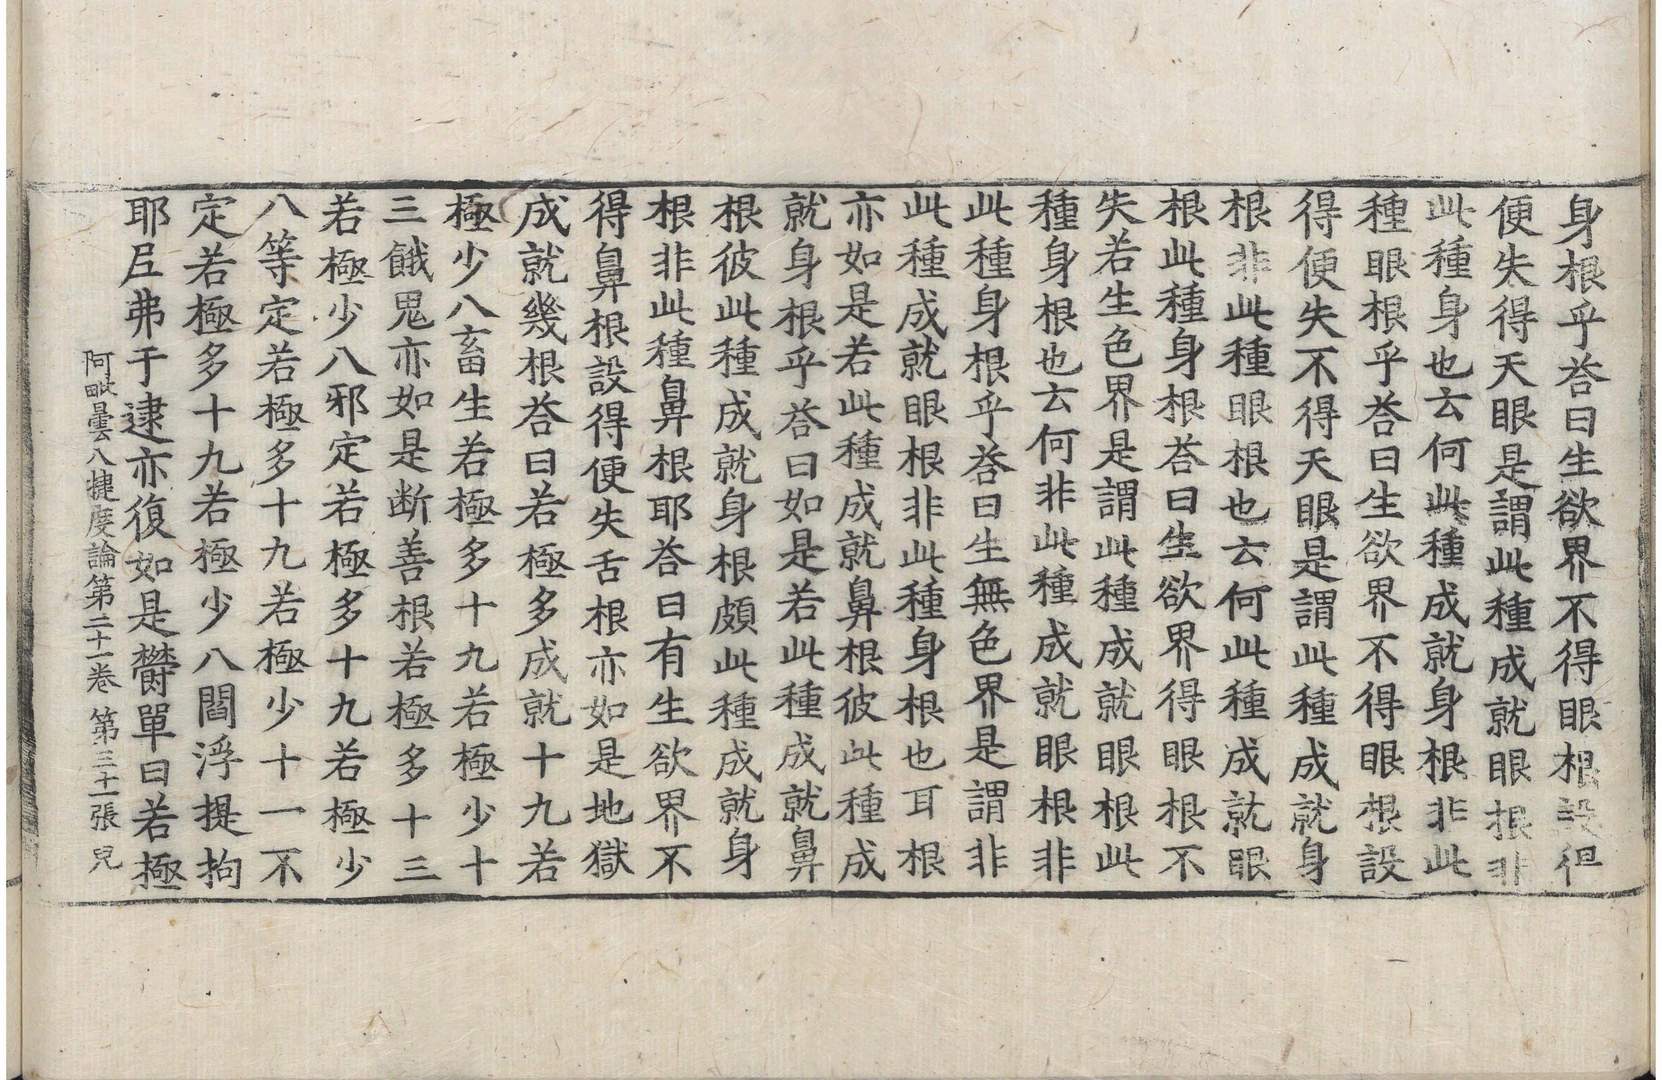 身根乎荅曰生欲界不得眼根設得
便失得天眼是謂此種成就眼根非
此種身也云何此種成就身根非此
種眼根乎荅曰生欲界不得眼根設
得便失不得天眼是謂此種成就身
根非此種眼根也云何此種成就眼
根此種身根荅曰生欲界得眼根不
失若生色界是謂此種成就眼根此
種身根也云何非此種成就眼根非
此種身根乎荅曰生無色界是謂非
此種成就眼根非此種身根也耳根
亦如是若此種成就鼻根彼此種成
就身根乎荅曰如是若此種成就鼻
根彼此種成就身根頗此種成就身
根非此種鼻根耶荅曰有生欲界不
得鼻根設得便失舌根亦如是地獄
成就幾根荅曰若極多成就十九若
極少八畜生若極多十九若極少十
三餓鬼亦如是断善根若極多十三
若極少八邪定若極多十九若極少
八等定若極多十九若極少十一不
定若極多十九若極少八閻浮提拘
耶𡰱弗于逮亦復如是欝單曰若極
阿毗曇八揵度論第二十一卷 第三十一張 兒